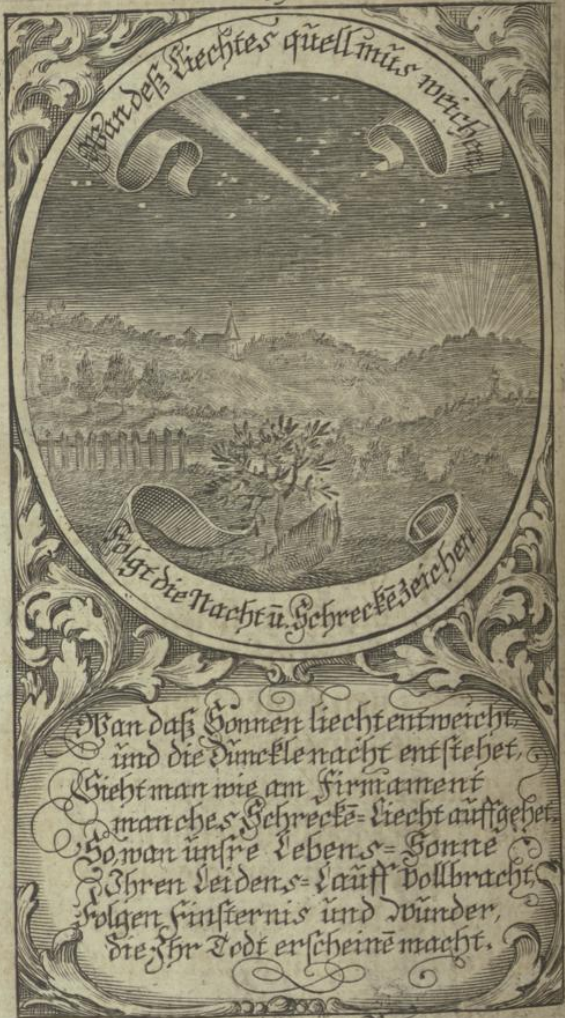 Wan deß Liechtes quell mus weichen
Folgt die Nacht ū. Schreckēzeichen
Wan daß Sonnen liecht entweicht,
und die Dunckle nacht entstehet,
Sieht man wie am Firmament
manches Schreckē-Liecht auffgehet.
So, wan unsre Lebens-Sonne
Ihren Leidens-Lauff vollbracht,
Folgen Finsternis und Wunder,
die Ihr Todt erscheinē macht.